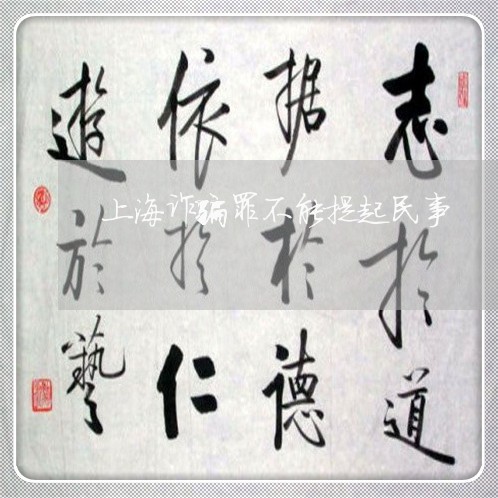 志於道
据於德
依於仁
遊於藝
上海诈骗罪不能提起民事